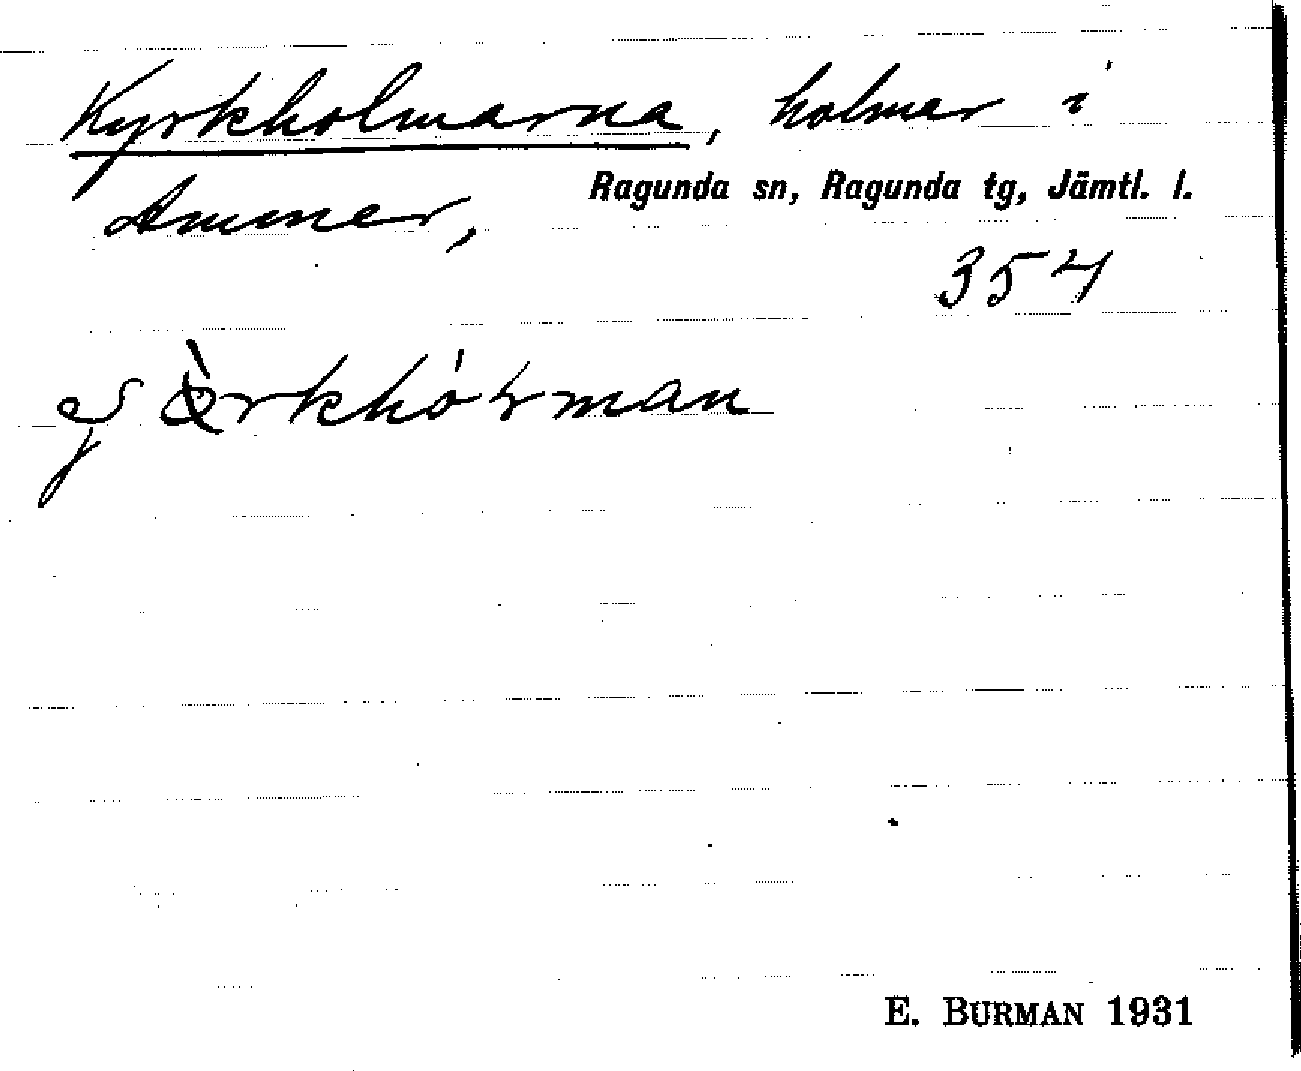 Kyrkholmarna, holmar i
Ammer, Ragunda sn, Ragunda tg, Jämtl. l.
354
E. BURMAN 1931